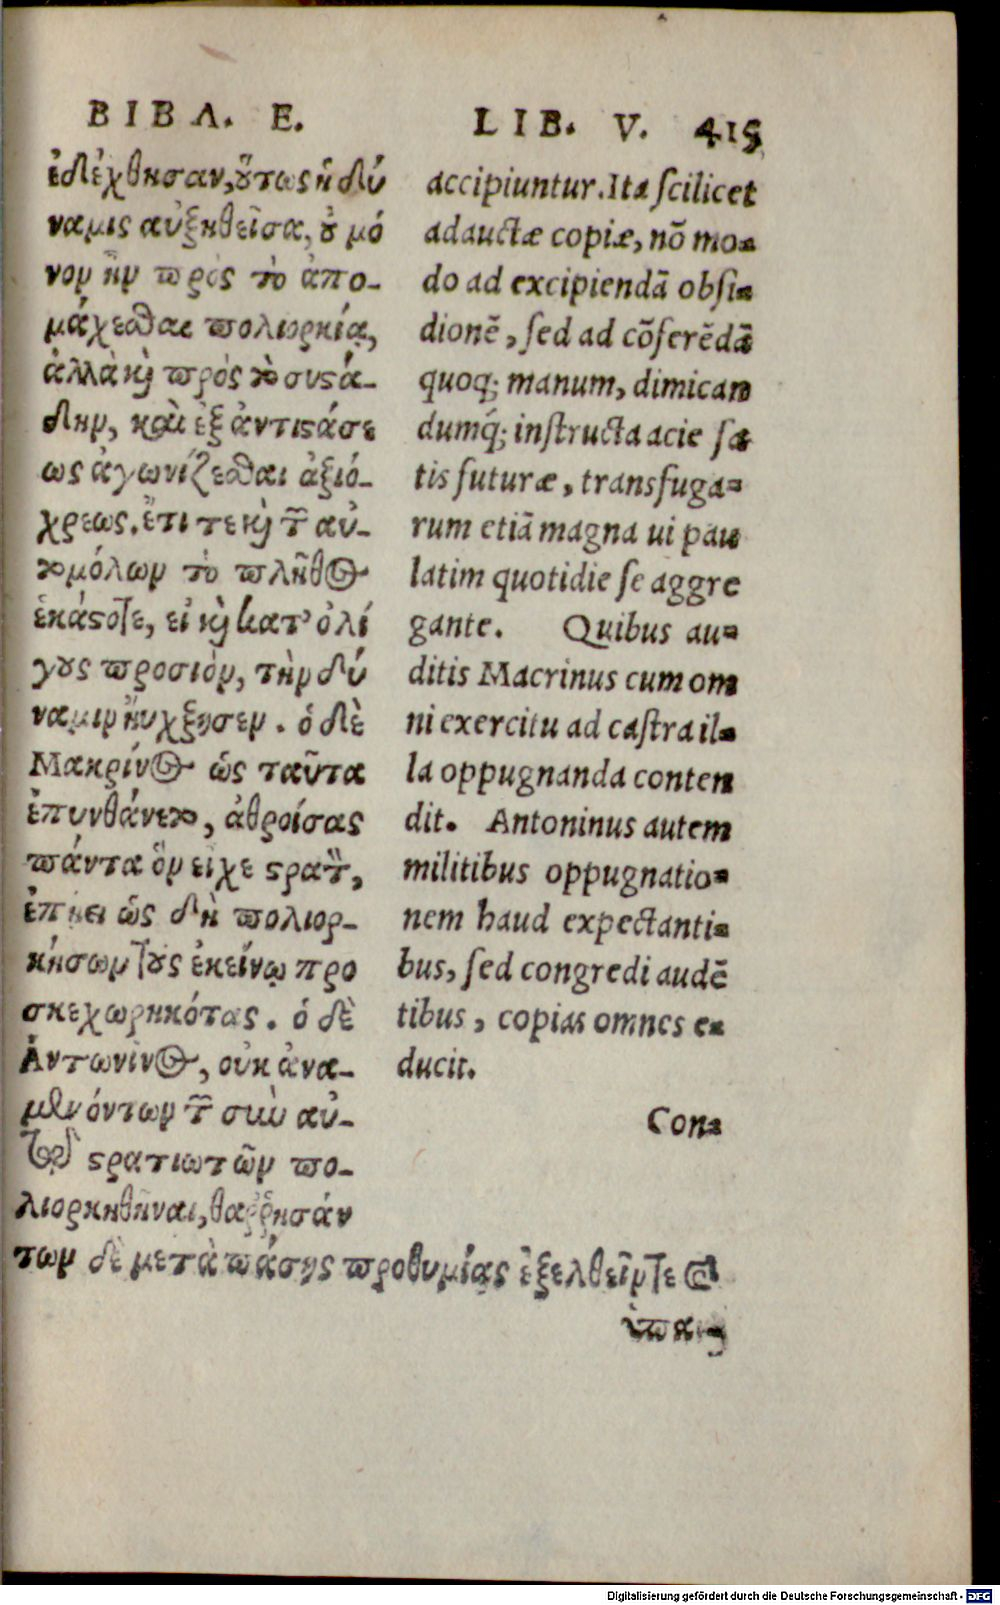 ΒΙΒΛ. Ε.
ἐδέχθησαν, ȣ̓́τως ἡ δύ
ναμις αὐξηθεῖσα, ȣ̓ μό
νον ἦν πρὸς τὸ ἀπο-
μάχεσθαι πολιορκίᾳ,
ἀλλὰ κὶ πρὸς τὸ συϛά-
δην, καὶ ἐξ ἀντιϛάσε
ως ἀγωνίζεσθαι ἀξιό-
χρεως. ἔτι τε κὶ τ̃ αὐ-
τομόλων τὸ πλῆθος
ἑκάϛοτε, εἰ κὶ κατ' ὀλί
γȣς προσιὸν, τὴν δύ
ναμιν ηὔχξησεν. ὁ δὲ
Μακρίνος ὡς ταῦτα
ἐπυνθάνετο, ἀθροίσας
πάντα ὃν εἶχε ϛρατ̃,
ἐπῄει ὡς δὴ πολιορ-
κήσων τȣ̀ς ἐκείνῳ προ
σκεχωρηκότας. ὁ δὲ
Ἀντωνῖνος, οὐκ ἀνα-
μενόντων τ̃ σὺν αὐ-
τῷ ϛρατιωτῶν πο-
λιορκηθῆναι, θαῤῥησάν
των δὲ μετὰ πάσης προθυμίας ἐξελθεῖν τε &
LIB. V. 415
accipiuntur. Ita ſcilicet
adauctæ copiæ, nõ mo-
do ad excipiendã obſi-
dionẽ, ſed ad cõſerẽdã
quoq; manum, dimican
dumq́; inſtructa acie ſa
tis futuræ, transfuga-
rum etiã magna ui pau
latim quotidie ſe aggre
gante. Quibus au-
ditis Macrinus cum om
ni exercitu ad caſtra il-
la oppugnanda conten
dit. Antoninus autem
militibus oppugnatio-
nem haud expectanti-
bus, ſed congredi audẽ
tibus, copias omnes e-
ducit.
Con-
Digitalisierung gefördert durch die Deutsche Forschungsgemeinschaft - DFG